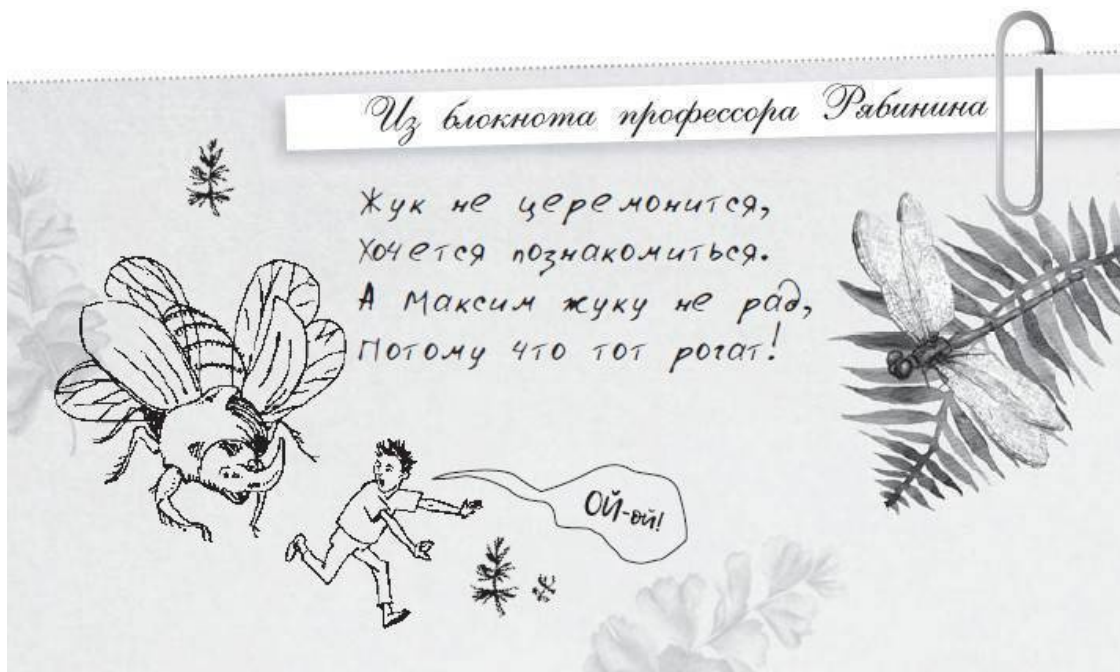 Из блокнота профессора Рябинина
Жук не церемонится,
Хочется познакомиться.
А Максим жуку не рад,
Потому что тот рогат!
ОЙ-ой!